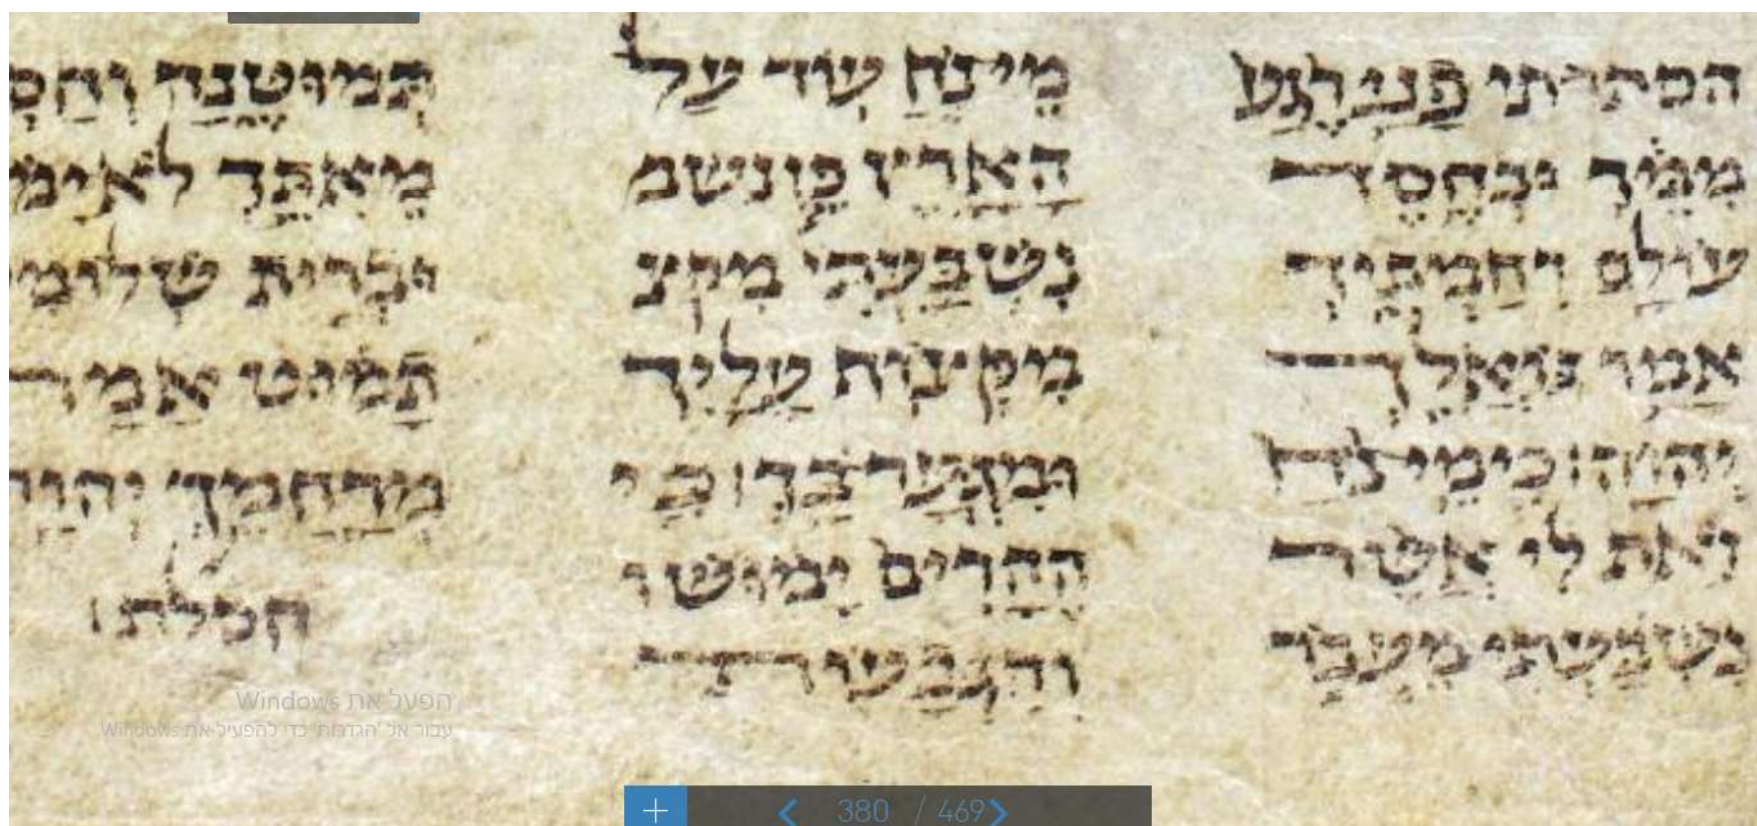 הסתרתי פני רגע
ממך ובחסד
עולם רחמתיך
אמר גואלך
יהוה כי מי נח
זאת לי אשר
נשבעתי מעבר
מי נח עוד על
הארץ כן נשב
נשבעתי מקצ
מקצוף עליך
ומגער בך כי
ההרים ימושו
והגבעות
תמוטנה וחס
מאתך לא ימ
וברית שלומ
תמוט אמר
מרחמך יהוה
הפעל את Windows
עבור אל 'הגדרות' כדי להפעיל את Windows
380 / 469